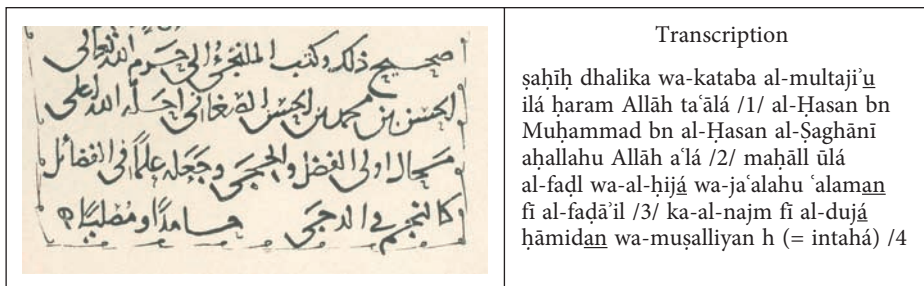 صحيح ذلك وكتب الملتجئُ الى حرم الله تعالى
الحسن بن محمد بن الحسن الصغاني احله الله اعلى
محال اولى الفضل والحجى وجعله علمًا في الفضائل
كالنجم في الدجى حامدًا ومصليًا ه
Transcription
ṣaḥīḥ dhalika wa-kataba al-multaji’u
ilá ḥaram Allāh ta‘ālá /1/ al-Ḥasan bn
Muḥammad bn al-Ḥasan al-Ṣaghānī
aḥallahu Allāh a‘lá /2/ maḥāll ūlá
al-faḍl wa-al-ḥijá wa-ja‘alahu ‘alaman
fī al-faḍā’il /3/ ka-al-najm fī al-dujá
ḥāmidan wa-muṣalliyan h (= intahá) /4